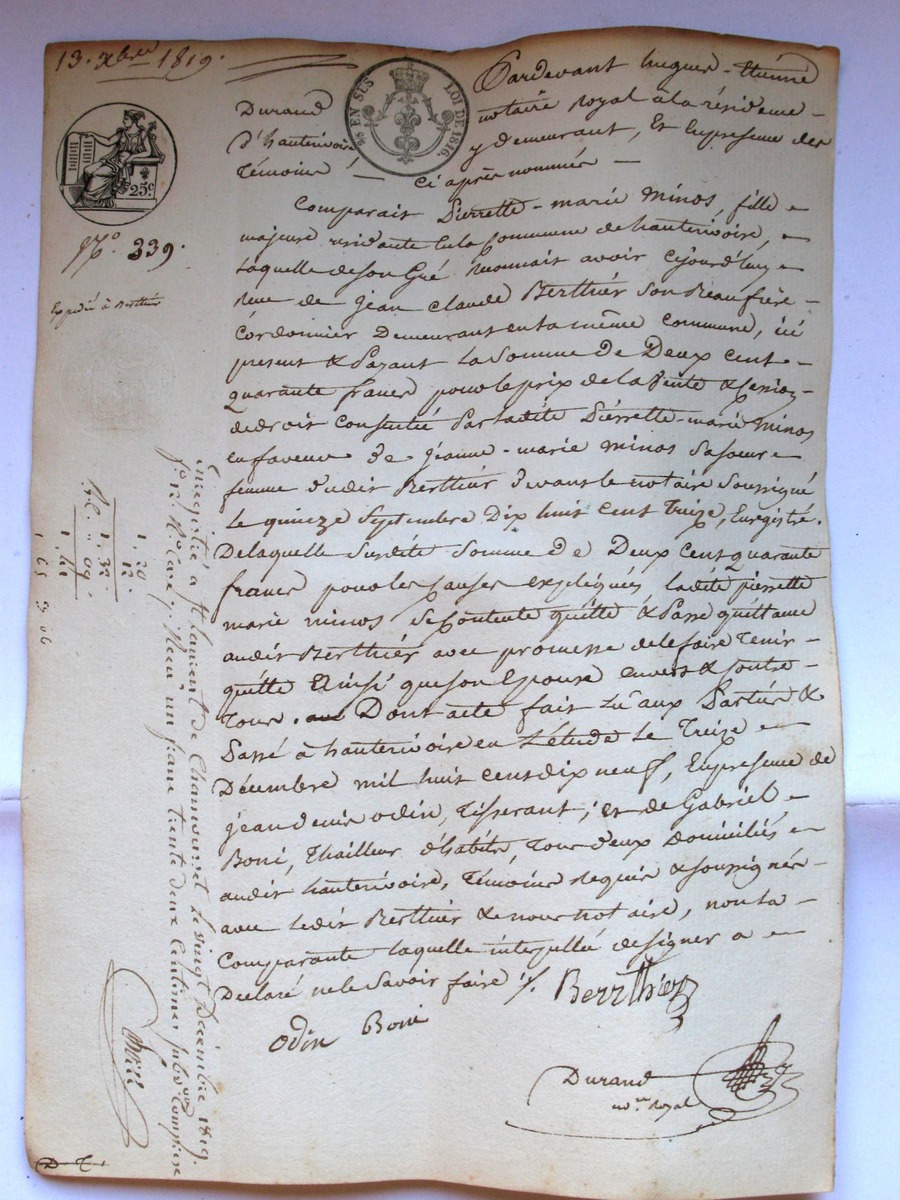 13. Xbre 1819.
EN SUS LOI DE 1816.
25c
No. 339.
Expédié à Berthier
Pardevant hugues-Etienne
Durand notaire Royal à la résidence
d'hauterivoire y demeurant, Et En presence des
Témoins Ci après nommés
Comparait Pierrette-marie Minos fille
majeure residante En la Commune de hauterivoire,
Laquelle de son Gré reconnait avoir Cejourd'huy
Reçu de jean claude Berthier son Beaufrère
Cordonnier Demeurant en la même Commune, ici
present & Payant La Somme de Deux Cent
quarante francs pour le prix de la Vente & Cession
de droit Consentie Par ladite Pierrette-marie Minos
en faveur de jeanne-marie Minos Sa soeur
femme dudit Berthier devant le notaire Soussigné
Le quinze Septembre Dix huit Cent Treize, Enregistré.
De laquelle Susdite Somme de Deux Cent quarante
francs pour les Causes expliquées ladite pierrette
marie minos se Contente quitte & Passe quittance
audit Berthier avec promesse de le faire Tenir
quitte Ainsi que son Epouse envers & Contre
Tous. Dont acte fait Lû aux Parties &
Passé à hauterivoire en L'étude Le Treize
Décembre mil huit Cent dix neuf, En presence de
jean denis odin, Tisserant, et de Gabriel
Boni, Thailleur d'habits, Tous deux Domiciliés
audit hauterivoire, Témoins Requis & soussignés
avec ledit Berthier & nous notaire, non la
Comparante laquelle interpellée de signer a
Declaré ne le Savoir faire /.
Berrthier
odin Boni
Durand
nore Royal
Enregistré à St Laurent de Chamousset le vingt Décembre 1819.
fo 12 Ro Case 7. Recu un franc trente deux Centimes subvon Comprise
1, 20
12
1, 32
09
1, 41
1 65
3 06
D T